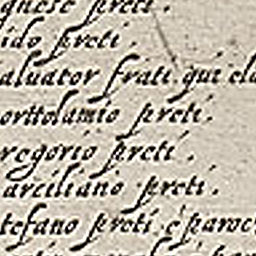 preti.
ido preti.
aluator frati qui
orttolamio preti.
regorio preti.
arciliano preti.
tefano preti é paroc